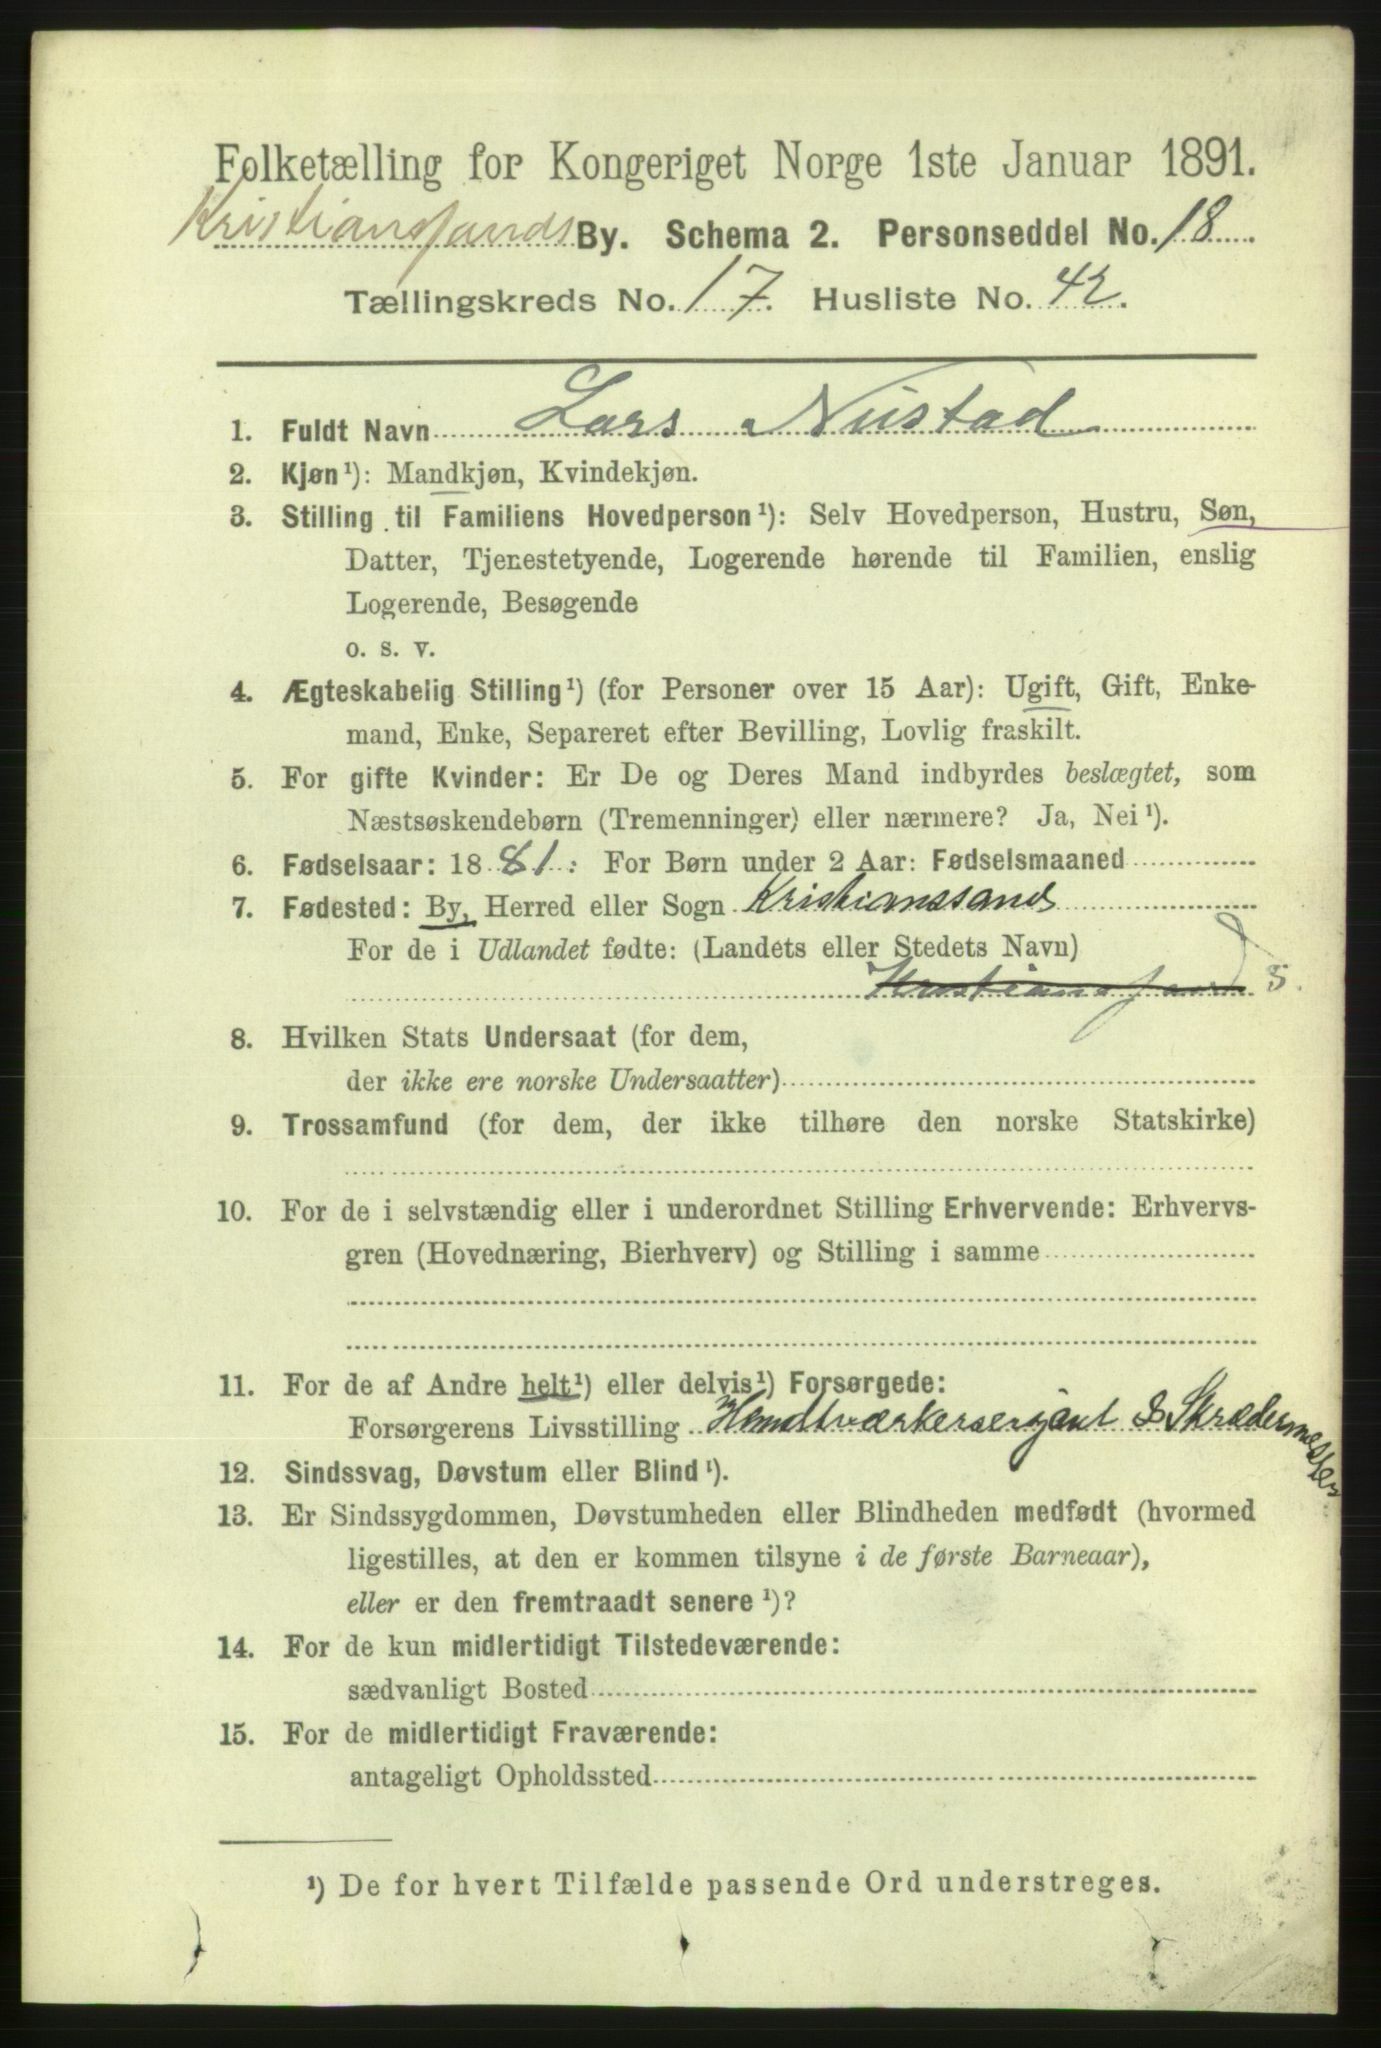 Folketælling for Kongeriget Norge 1ste Januar 1891.
Kristianssands By. Schema 2. Personseddel No. 18
Tællingskreds No. 17. Husliste No. 42.
1. Fuldt Navn Lars Nustad
2. Kjøn¹): Mandkjøn, Kvindekjøn.
3. Stilling til Familiens Hovedperson¹): Selv Hovedperson, Hustru, Søn,
Datter, Tjenestetyende, Logerende hørende til Familien, enslig
Logerende, Besøgende
o. s. v.
4. Ægteskabelig Stilling¹) (for Personer over 15 Aar): Ugift, Gift, Enke-
mand, Enke, Separeret efter Bevilling, Lovlig fraskilt.
5. For gifte Kvinder: Er De og Deres Mand indbyrdes beslægtet, som
Næstsøskendebørn (Tremenninger) eller nærmere? Ja, Nei¹).
6. Fødselsaar: 1881: For Børn under 2 Aar: Fødselsmaaned
7. Fødested: By, Herred eller Sogn Kristianssand
For de i Udlandet fødte: (Landets eller Stedets Navn)
Kristianssand 5.
8. Hvilken Stats Undersaat (for dem,
der ikke ere norske Undersaatter)
9. Trossamfund (for dem, der ikke tilhøre den norske Statskirke)
10. For de i selvstændig eller i underordnet Stilling Erhvervende: Erhvervs-
gren (Hovednæring, Bierhverv) og Stilling i samme
11. For de af Andre helt¹) eller delvis¹) Forsørgede:
Forsørgerens Livsstilling Handtværkersergjant & Skrædermester
12. Sindssvag, Døvstum eller Blind¹).
13. Er Sindssygdommen, Døvstumheden eller Blindheden medfødt (hvormed
ligestilles, at den er kommen tilsyne i de første Barneaar),
eller er den fremtraadt senere¹)?
14. For de kun midlertidigt Tilstedeværende:
sædvanligt Bosted
15. For de midlertidigt Fraværende:
antageligt Opholdssted
¹) De for hvert Tilfælde passende Ord understreges.